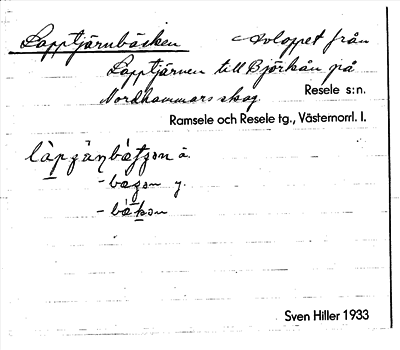 Lapptjärnbäcken Avloppet från
Lapptjärnen till Björkån på
Nordhammars skog. Resele s:n.
Ramsele och Resele tg., Västernorrl. l.
- bækǝn
Sven Hiller 1933